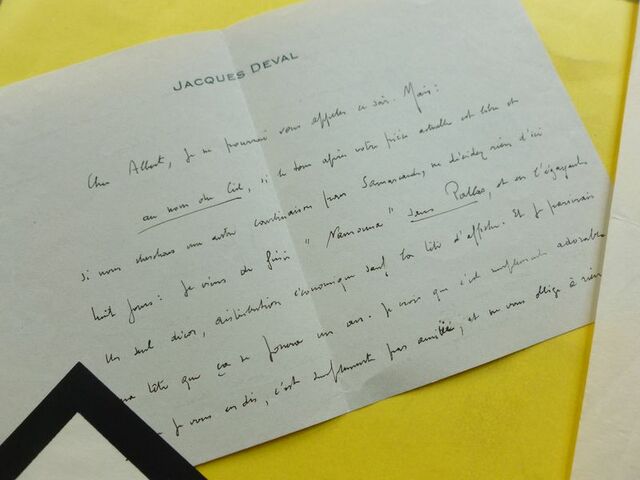 JACQUES DEVAL
Cher Albert, je ne pourrai vous appeler ce soir. Mais:
au nom du Ciel, si le tour après votre pièce actuelle est libre et
si vous cherchez une autre combinaison pour Samarcande, ne décidez rien d'ici
huit jours: Je viens de finir "Namouna" sans Pallas, et en l'égayant.
Un seul décor, distribution économique sauf la tête d'affiche. Et je parierais
ma tête que ça se jouera un an. Je crois que c'est simplement adorable
Je vous en dis, c'est simplement par amitié, et ne vous oblige à rien